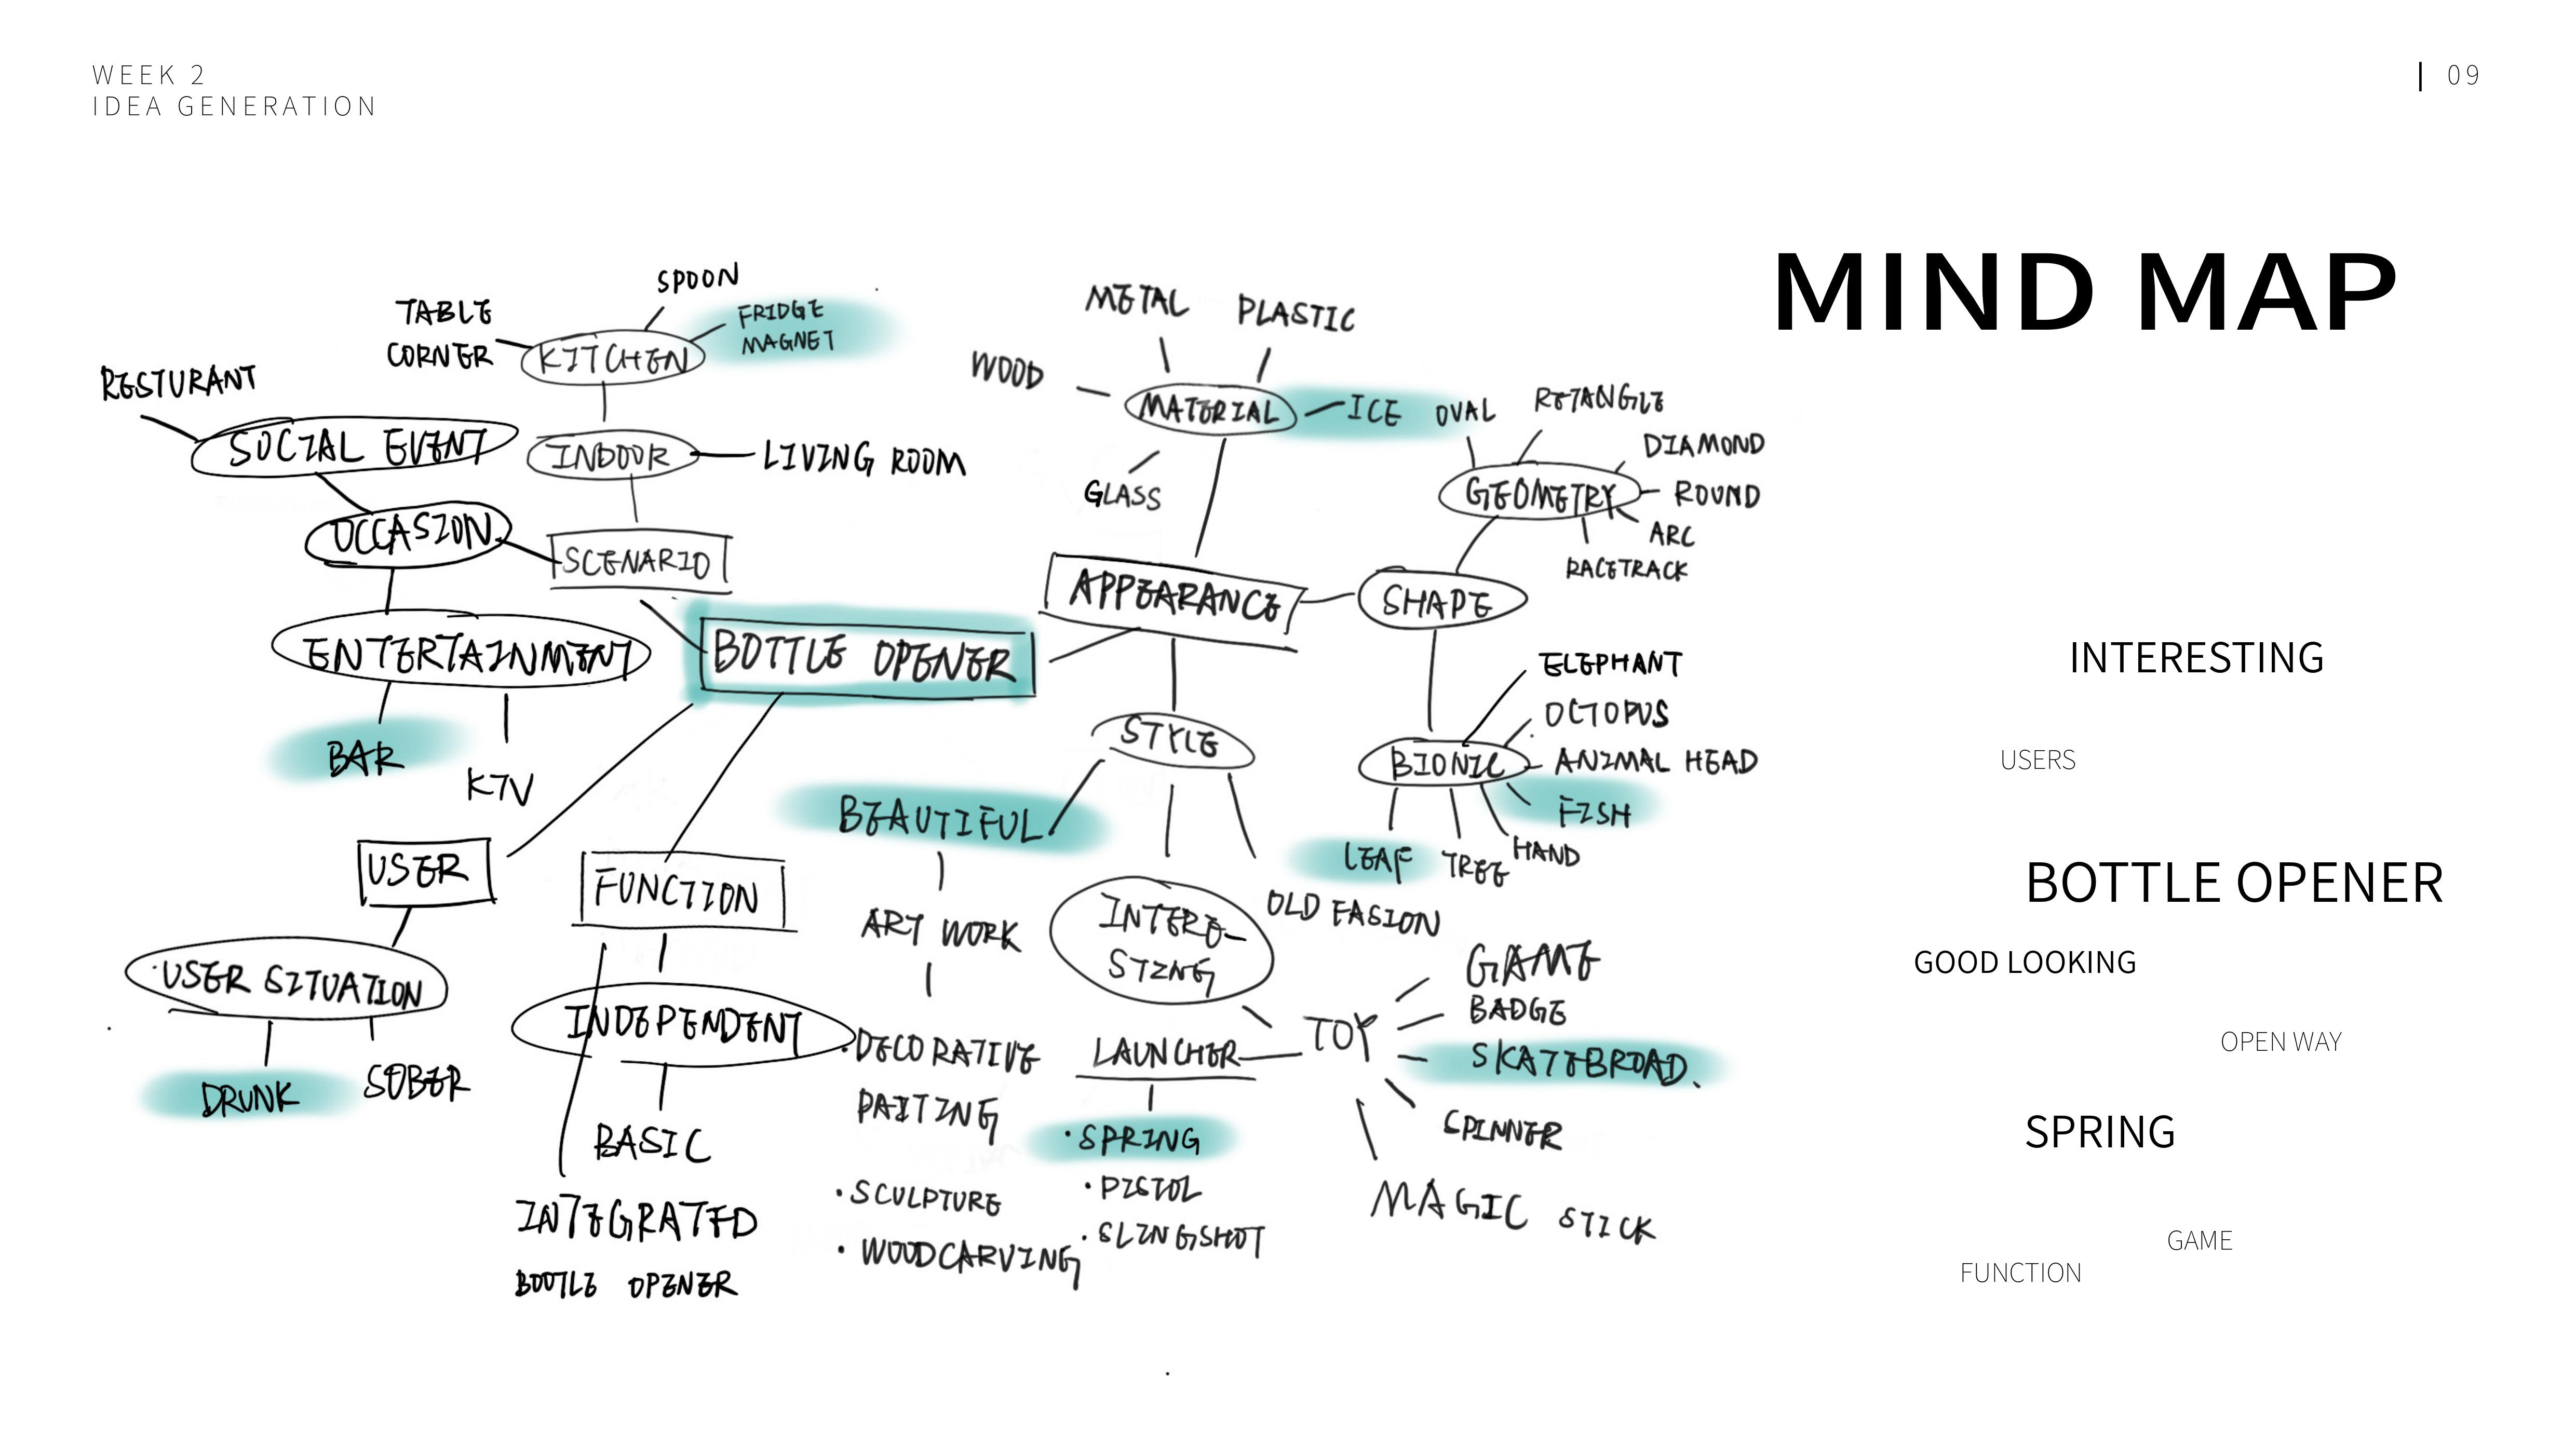 WEEK 2
IDEA GENERATION
| 09
MIND MAP
SPOON
TABLE
CORNER
KITCHEN
FRIDGE
MAGNET
RESTURANT
SOCIAL EVENT
INDOOR
LIVING ROOM
OCCASION
SCENARIO
ENTERTAINMENT
BAR
KTV
BOTTLE OPENER
METAL
PLASTIC
WOOD
MATERIAL
ICE
GLASS
APPEARANCE
OVAL
RETANGLE
DIAMOND
GEOMETRY
ROUND
ARC
RACETRACK
SHAPE
ELEPHANT
OCTOPUS
BIONIC
ANIMAL HEAD
FISH
HAND
TREE
LEAF
STYLE
BEAUTIFUL
ART WORK
·DECORATIVE
PAITING
·SCULPTURE
·WOODCARVING
INTERE-
STING
OLD FASION
TOY
GAME
BADGE
SKATEBROAD.
SPINNER
MAGIC STICK
LAUNCHER
·SPRING
·PISTOL
·SLINGSHOT
USER
USER SITUATION
DRUNK
SOBER
FUNCTION
INDEPENDENT
BASIC
INTEGRATED
BOOTLE OPENER
INTERESTING
USERS
BOTTLE OPENER
GOOD LOOKING
OPEN WAY
SPRING
GAME
FUNCTION